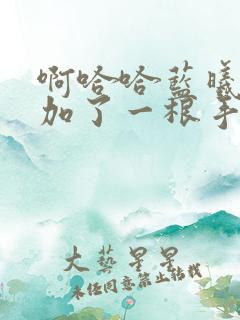 啊哈哈蓝曦
加了一根手
大艺星星
未经同意禁止转载